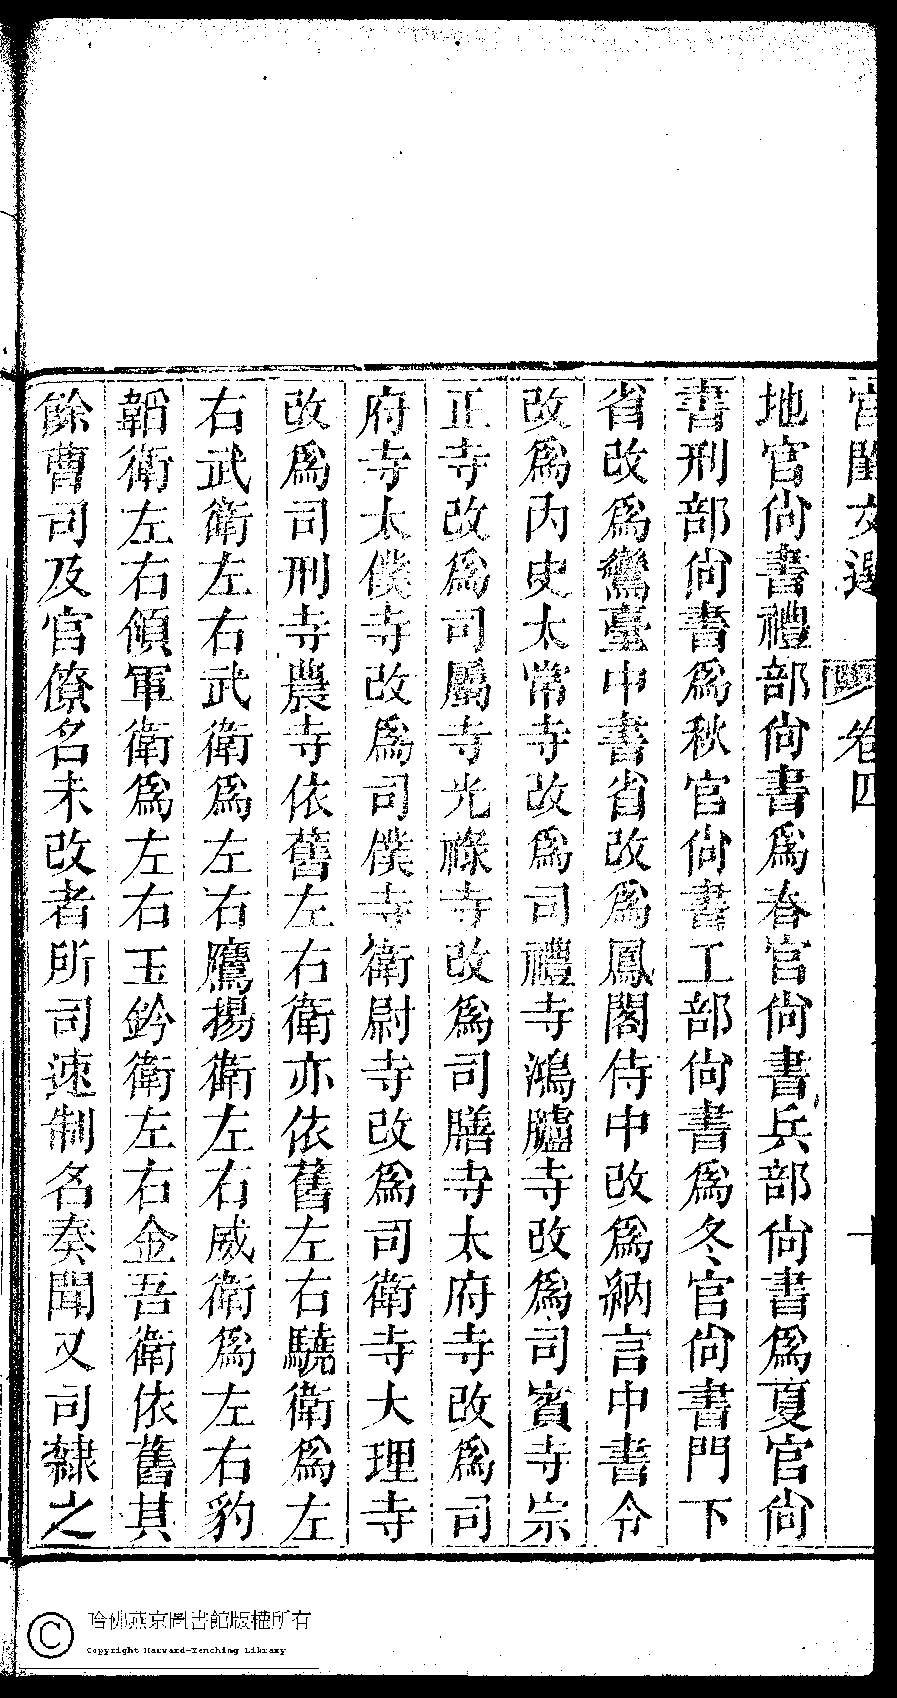 宮閨文選 卷四 十
地官尙書禮部尙書爲春官尙書兵部尙書爲夏官尙
書刑部尙書爲秋官尙書工部尙書爲冬官尙書門下
省改爲鸞臺中書省改爲鳳閣侍中改爲納言中書令
改爲內史太常寺改爲司禮寺鴻臚寺改爲司賓寺宗
正寺改爲司屬寺光祿寺改爲司膳寺太府寺改爲司
府寺太僕寺改爲司僕寺衛尉寺改爲司衛寺大理寺
改爲司刑寺農寺依舊左右衛亦依舊左右驍衛爲左
右武衛左右武衛爲左右鷹揚衛左右威衛爲左右豹
韜衛左右領軍衛爲左右玉鈐衛左右金吾衛依舊其
餘曹司及官僚名未改者所司速制名奏聞又司隸之
哈佛燕京圖書館版權所有
Copyright Harvard-Yenching Library